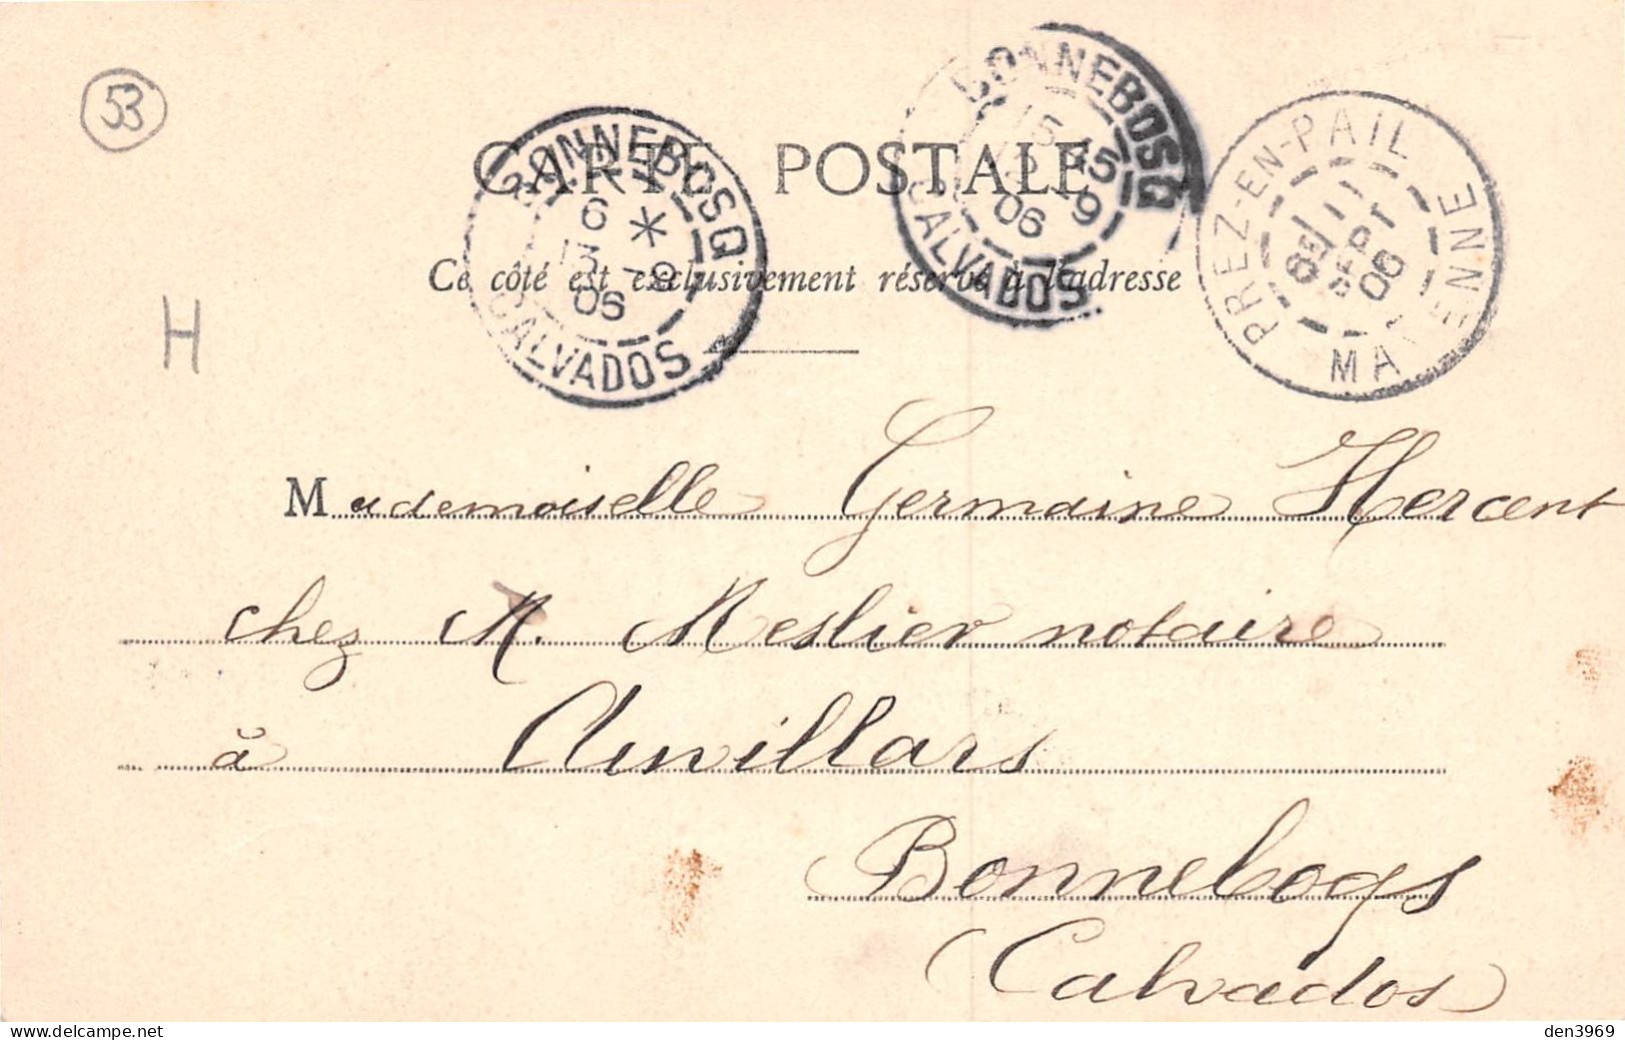 53
BONNEBOSQ
6 *
13 -9
06
CALVADOS
BONNEBOSQ
15 45
12 9
06
CALVADOS
PREZ-EN-PAIL
11
SEPT
06
MAYENNE
CARTE POSTALE
Ce côté est exclusivement réservé à l'adresse
H
Mademoiselle Germaine Hercent
chez M. Meslier notaire
à Auvillars
Bonnebogs
(Calvados)
www.delcampe.net
den3969